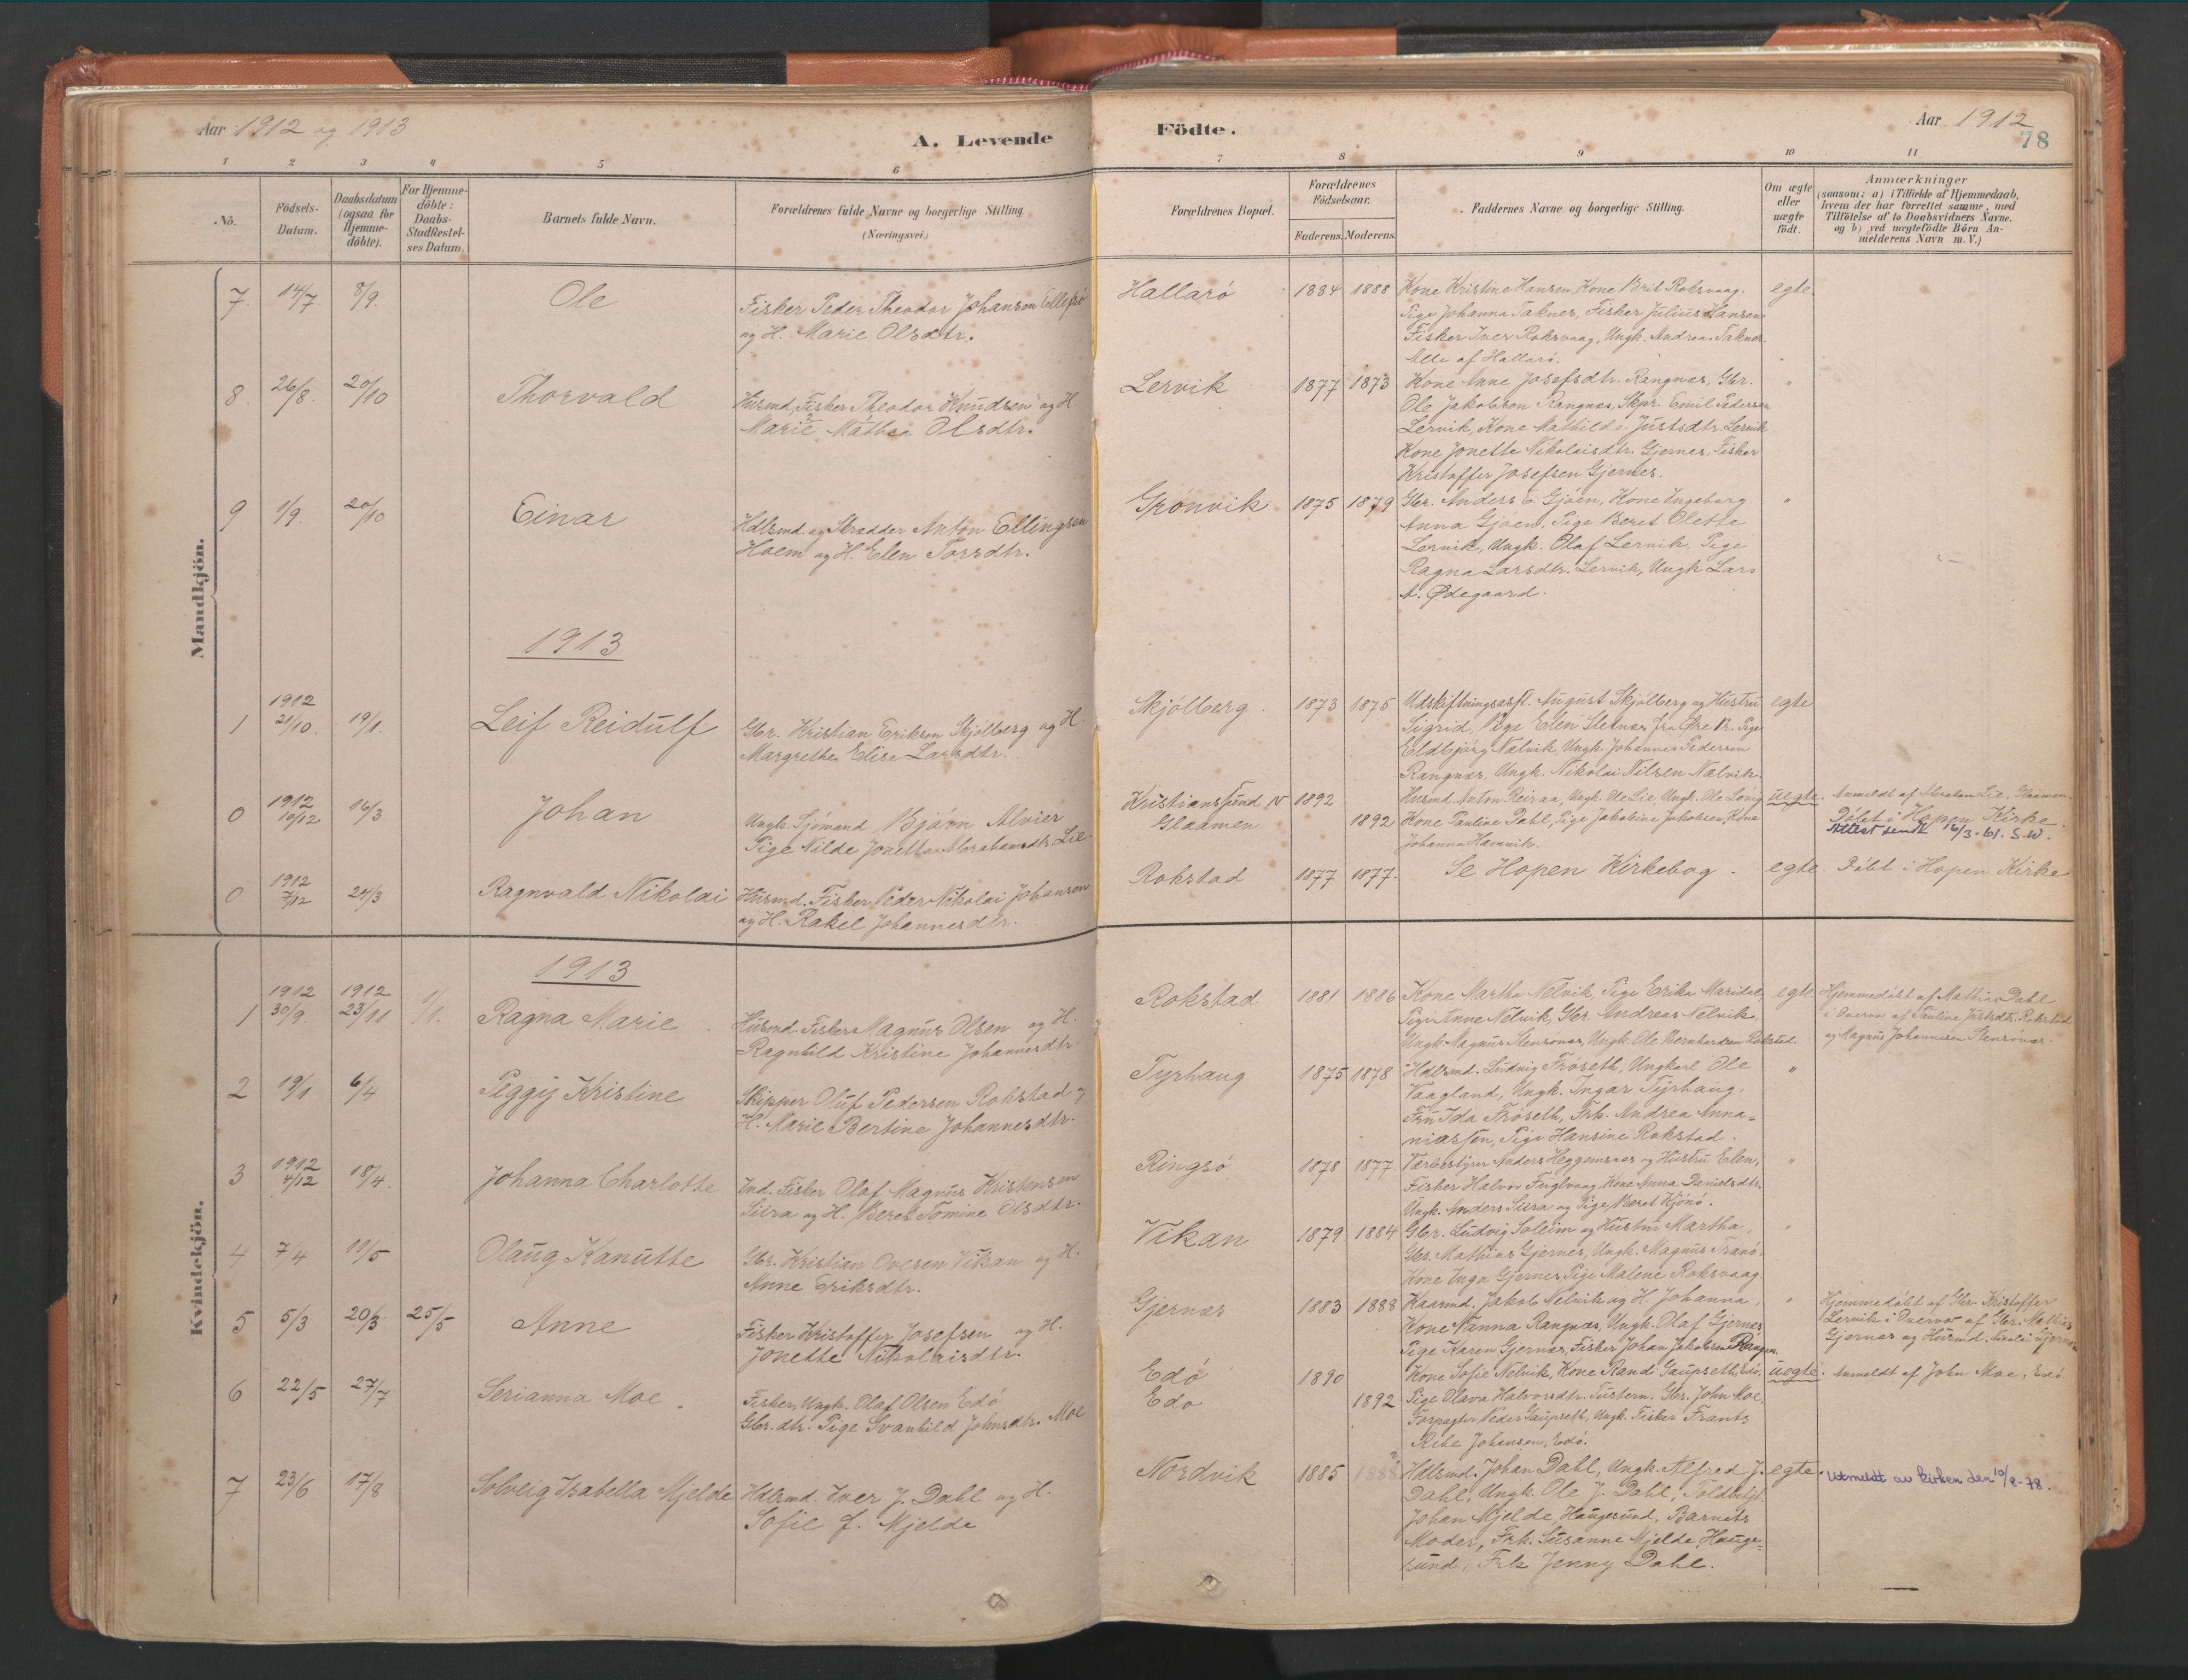 Aar 1912 og 1913
A. Levende Födte.
Aar 1912
78
1 2 3 4 5 6 7 8 9 10 11
No.
Födsels-Datum.
Daabsdatum (ogsaa for Hjemme-döbte).
For Hjemme-döbte: Daabs-Stadfæstel-ses Datum.
Barnets fulde Navn.
Forældrenes fulde Navne og borgerlige Stilling
(Næringsvei.)
Forældrenes Bopæl.
Forældrenes Födselsaar.
Faderens. Moderens.
Faddernes Navne og borgerlige Stilling.
Om ægte eller uægte födt.
Anmærkninger
(saasom: a) i Tilfælde af Hjemmedaab,
hvem der har forrettet samme, med
Tilföielse af to Daabsvidners Navne.
og b) ved uægtefödte Börn An-
melderens Navn m. V.)
Mandkjön.
7. 14/7. 8/9. Ole
Fisker Peder Theodor Johansen
og H. Marie Olsdtr.
Hallarö 1884 1888
Kone Kristine Hansen, Kone Brit Roksvaag.
Pige Johanna Taknes, Fisker Julius Hansen
Fisker Iver Roksvaag, Ungk. Andreas Taknes.
Alle af Hallarö.
egte.
8. 26/8. 20/10 Thorvald
Husmd, Fisker Theodor Knudsen og H
Marie Mathea Olsdtr.
Lervik 1877 1873
Kone Anne Josefsdtr. Rangnæs, Gbr.
Ole Jakobsen Rangnæs, Skpr. Emil Pedersen
Lervik, Kone Mathilde Justsdtr. Lervik
Kone Jonette Nikolaisdtr. Gjernes, Fisker
Kristoffer Josefsen Gjernes.
"
9 1/9. 20/10 Einar
Hdlsmd. og Skrædder Anton Ellingsen
Hoem og H. Elen Torsdtr.
Grönvik 1875 1879
Gbr. Anders E. Gjöen, Kone Ingeborg
Anna Gjöen, Pige Beret Olette
Lervik, Ungk. Olaf Lervik, Pige
Ragna Larsdtr. Lervik, Ungk Lars
A. Ødegaard.
"
1913
1 1912 21/10. 19/1. Leif Reidulf
Gbr. Kristian Eriksen Skjölberg og H
Margrethe Elise Larsdtr.
Skjölberg. 1873 1875
Udskiftningsasst. August Skjölberg og Hustru
Sigrid, Pige Elen
Eldbjörg Nelvik, Ungk. Johannes Pedersen
Rangnæs, Ungk. Nikolai Nilsen Nelvik.
egte
0 1912 10/12 16/3 Johan
Ungk. Sjömand Björn Alvier
Pige Nilde Jonetta Abrahamsdtr. Lie
Kristianssund N 1892
Glaamen 1892
Husmd. Anton Reiraa, Ungk. Ole Lie, Ungk. Ole
Kone Pauline Dahl, Pige Jakobine Jakobsen, Kone
Johanna Hamvik.
uegte. Anmeldt af Abraham Lie, Glaamen.
Döbt i Hopen Kirke.
Attest sendt 16/3-61. S.W.
0 1912 7/12 24/3 Ragnvald Nikolai
Husmd. Fisker Peder Nikolai Johansen
og H. Rakel Johannesdtr.
Rokstad 1877 1877.
Se Hopen Kirkebog.
egte. Döbt i Hopen Kirke
Kvindekjön.
1913
1 1912 30/9. 1912 23/11 1/1. Ragna Marie
Husmd. Fisker Magnus Olsen og H.
Ragnhild Kristine Johannesdtr.
Rokstad 1881 1886
Kone Martha Nelvik, Pige Erika Maridal,
Pige Anne Nelvik, Gbr. Andreas Nelvik
Ungk. Magnus Stensönæs, Ungk. Ole Bernhardsen Rokstad.
egte Hjemmedöbt af Mathias Dahl
i Overvær af Pauline Justsdtr. Rokstad
og Magnus Johannesen Stensönæs.
2 19/1 6/4 Peggy Kristine
Skipper Oluf Pedersen Rokstad og
H. Marie Bertine Johannesdtr.
Tyrhaug 1875 1878
Hdlsmd. Ludvig Fröseth, Ungkarl Ole
Vaagland, Ungk. Ingar Tyrhaug,
Fru Ida Fröseth, Frk. Andrea Anna=
niassen, Pige Hansine Rokstad.
"
3 1912 4/12 18/4. Johanna Charlotte
Ind. Fisker Olaf Magnus Kristensen
Siira og H. Beret Tomine Olsdtr.
Ringsö 1878 1877.
Værbestyrer Anders Heggemsnes og Hustru Elen,
Fisker Halvor Fuglvaag, Kone Anna Danielsdtr.
Ungk. Anders Siira og Pige Beret Kjönö.
"
4 7/4 11/5 Olaug Kanutte
Gbr. Kristian Ovesen Vikan og H.
Anne Eriksdtr.
Vikan 1879 1884
Gbr. Ludvig Soleim og Hustru Martha,
Gbr. Mathias Gjernes, Ungk. Magnus Tranö,
Kone Inga Gjernes, Pige Malene Roksvaag
"
5 5/3 20/3 25/5 Anne
Fisker Kristoffer Josefsen og H.
Jonette Nikolaisdtr.
Gjernæs 1883 1888
Kaarmd. Jakob Nelvik og H. Johanna,
Kone Nanna Rangnæs, Ungk. Olaf Gjernæs
Pige Karen Gjernæs, Fisker Johan Jakobsen Rangnæs.
" Hjemmedöbt af Gbr. Kristoffer
Lervik i Overvær af Gbr. Mathias
Gjernæs og Husmd. Nikolai Gjernæs
6 22/5 27/7 Serianna Moe.
Fisker, Ungk. Olaf Olsen Edö
Gbr. dtr. Pige Svanhild Johnsdtr. Moe
Edö 1890
Edö 1892
Kone Sofie Nelvik, Kone Randi Gaupseth, Edö,
Pige Olava Halvorsdtr. Tustern. Gbr. John Moe,
Forpagter Peder Gaupseth, Ungk. Fisker Frants
Ribe Johansen, Edö.
uegte. Anmeldt af John Moe, Edö
7 23/6 17/8 Solveig Isabella Mjelde
Hdlsmd. Iver J. Dahl og H.
Sofie f. Mjelde
Nordvik 1885 1888
Hdlsmd. Johan Dahl, Ungk. Alfred J.
Dahl, Ungk. Ole J. Dahl, Toldbetjt.
Johan Mjelde, Haugesund, Barnets
Moder, Frk. Susanne Mjelde, Hauge=
sund, Frk Jenny Dahl.
egte. Utmeldt av kirken den 10/8-78.